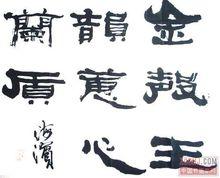 金聲玉
韻蕙心
蘭質